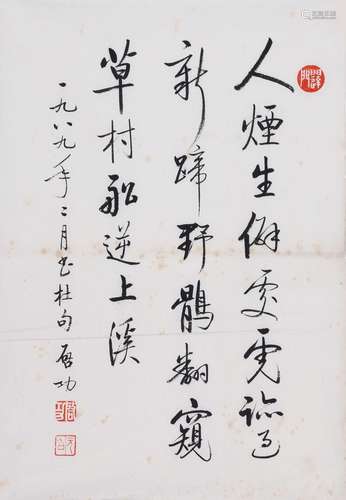 人煙生僻處虎跡過
新蹄野鶻翻窺
草村船逆上溪
一九八九年二月书杜句 启功